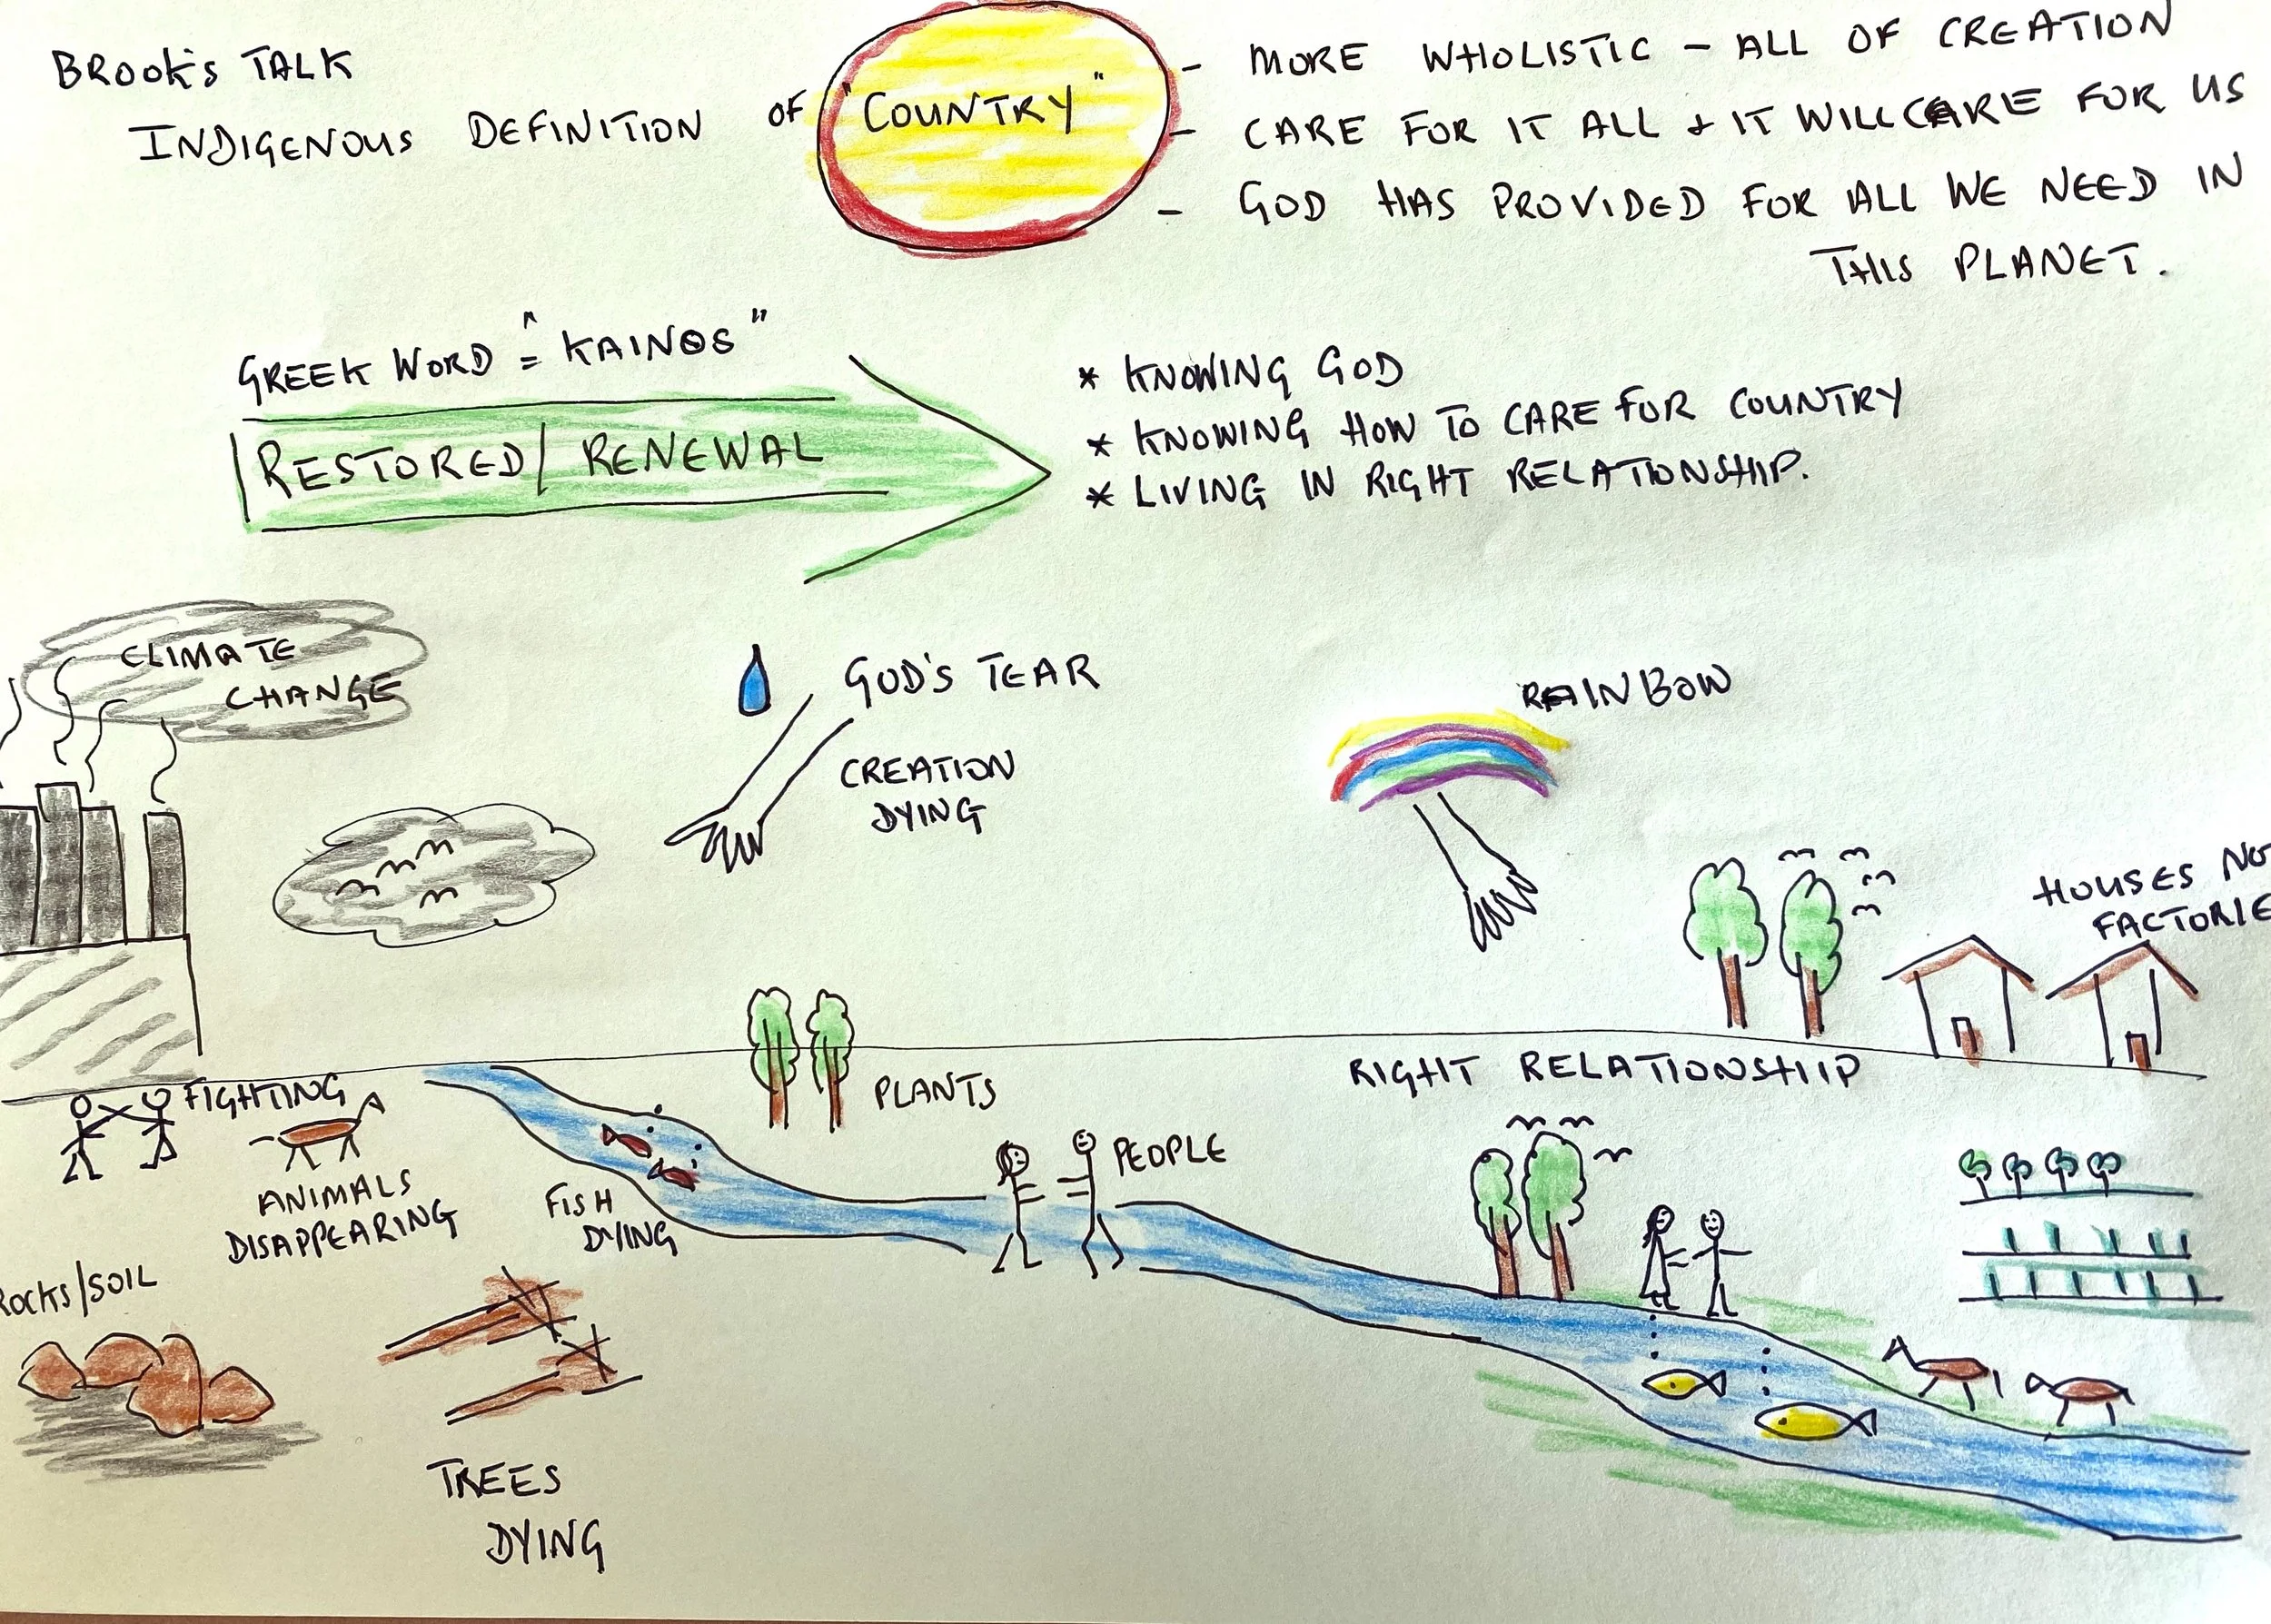 BROOK'S TALK
INDIGENOUS DEFINITION OF "COUNTRY"
- MORE WHOLISTIC - ALL OF CREATION
- CARE FOR IT ALL + IT WILL CARE FOR US
- GOD HAS PROVIDED FOR ALL WE NEED IN
THIS PLANET.
GREEK WORD = "KAINOS"
RESTORED / RENEWAL
* KNOWING GOD
* KNOWING HOW TO CARE FOR COUNTRY
* LIVING IN RIGHT RELATIONSHIP.
CLIMATE
CHANGE
GOD'S TEAR
CREATION
DYING
RAINBOW
HOUSES NO
FACTORIE
FIGHTING
ANIMALS
DISAPPEARING
FISH
DYING
PLANTS
PEOPLE
RIGHT RELATIONSHIP
ROCKS/SOIL
TREES
DYING